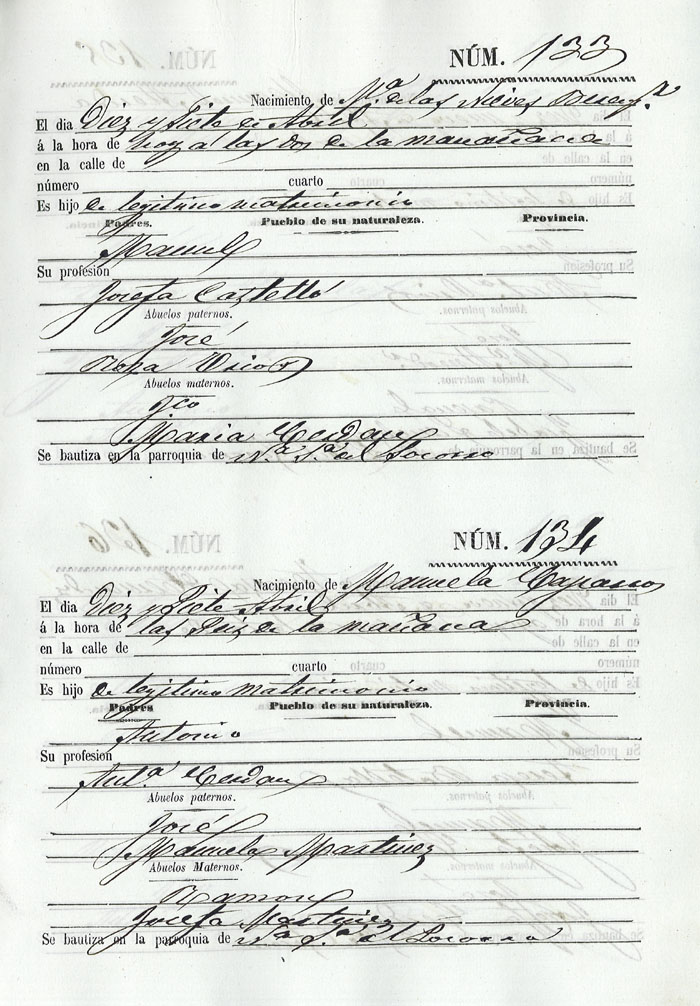 NÚM. 133
Nacimiento de Mª. de las Nieves
El dia Diez y Siete de Abril
á la hora de hoy a las dos de la mañana
en la calle de
número cuarto
Es hijo de legitimo matrimonio
Padres. Pueblo de su naturaleza. Provincia.
Manuel
Su profesion
Josefa Castelló
Abuelos paternos.
José
Rosa
Abuelos maternos.
Fco
Maria Cerdan
Se bautiza en la parroquia de Nª. Sª. del Socorro
NÚM. 134
Nacimiento de Manuela
El dia Diez y Siete Abril
á la hora de las Seis de la mañana
en la calle de
número cuarto
Es hijo de legitimo matrimonio
Padres Pueblo de su naturaleza. Provincia.
Antonio
Su profesion
Antª. Cerdan
Abuelos paternos.
José
Manuela Martinez
Abuelos Maternos.
Ramon
Josefa Martinez
Se bautiza en la parroquia de Nª. Sª. del Socorro